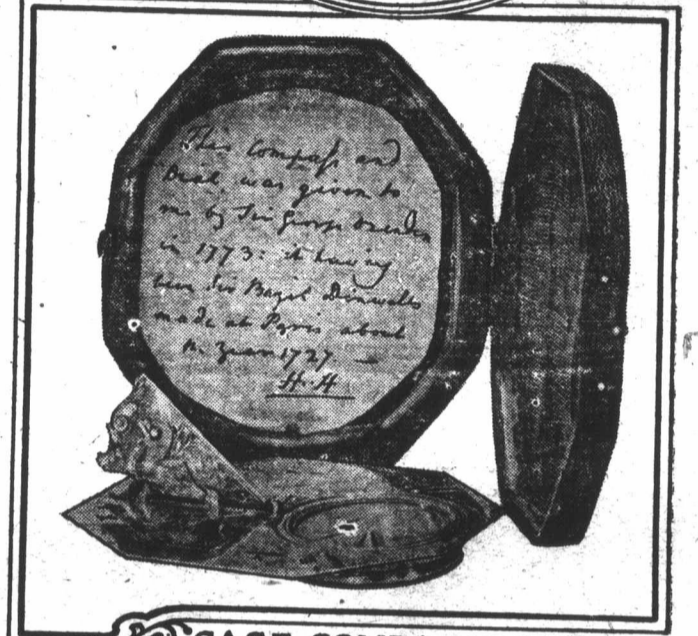 This Compaſs and
Dial, was given to
me by Sir George
in 1773: it having
been Sir Bazil Dixwells
made at Paris about
the Year 1727 —
H. H
CASE